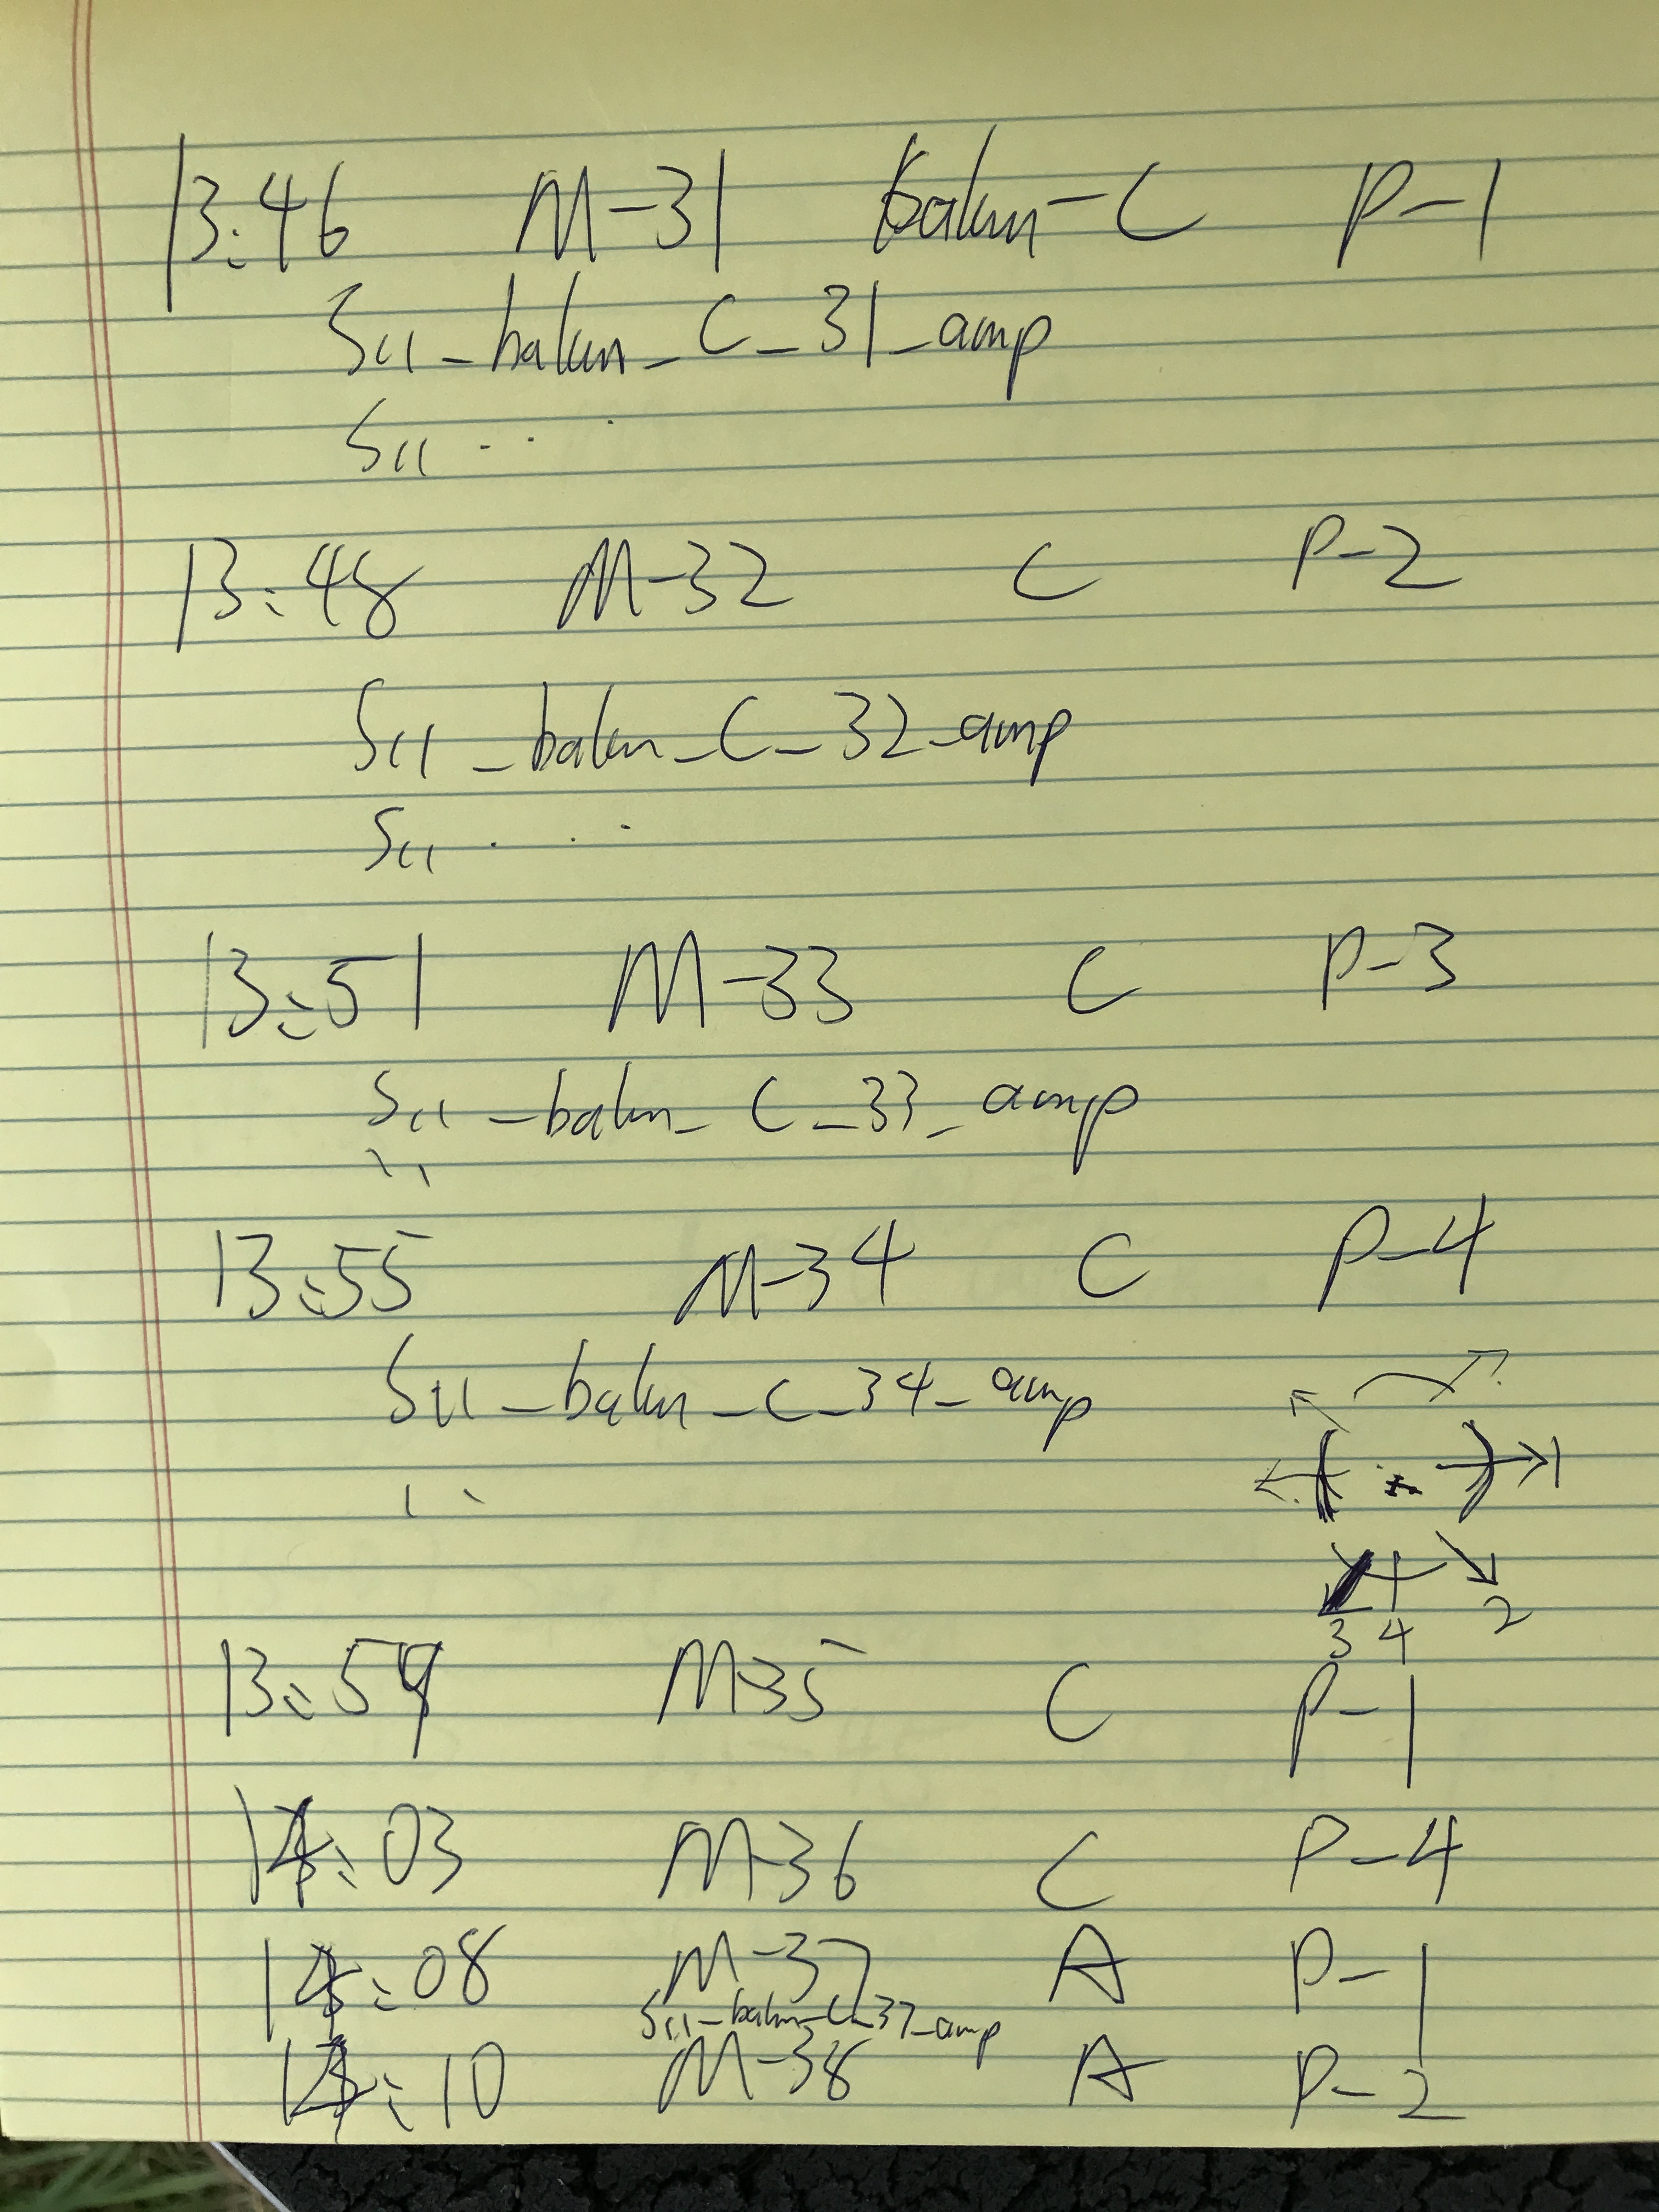 13:46 M-31 balun-C P-1
S11_balun_C_31_amp
S11 ...
13:48 M-32 C P-2
S11_balun_C_32_amp
S11 ...
13:51 M-33 C P-3
S11_balun_C_33_amp
13:55 M-34 C P-4
S11_balun_C_34_amp
1
2
3 4
13:59 M-35 C P-1
14:03 M-36 C P-4
14:08 M-37 A P-1
S11_balun_C_37_amp
14:10 M-38 A P-2